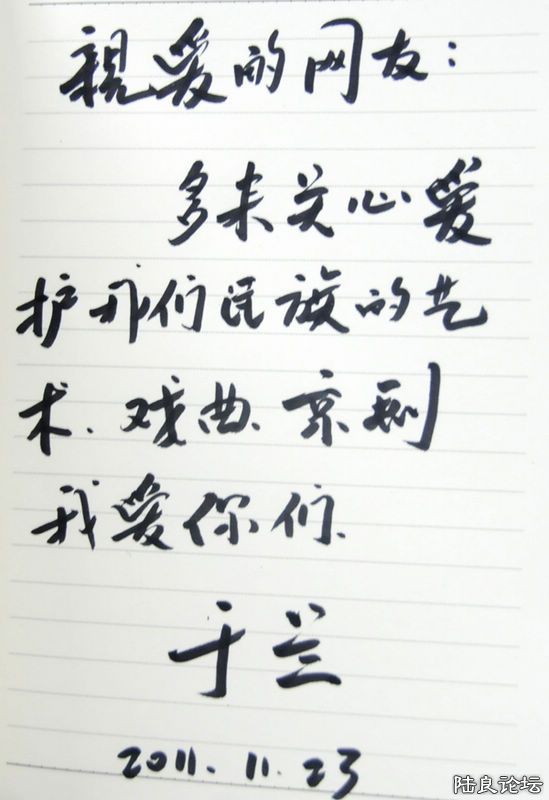 親爱的网友：
多来关心爱
护我们民族的艺
术、戏曲、京剧
我爱你们、
于兰
2011.11.23
陆良论坛